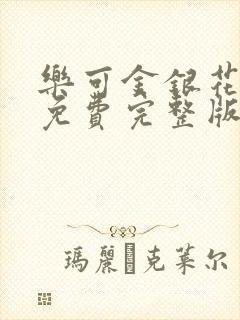 樂可金銀花
免費完整版
瑪麗·克萊尔